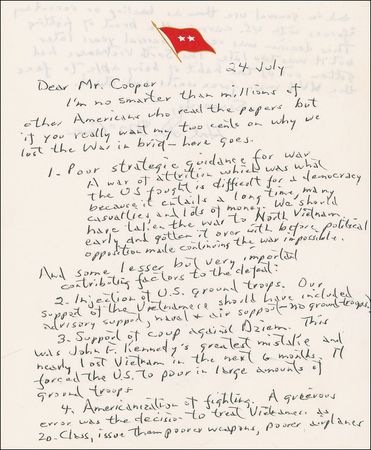 24 July
Dear Mr. Cooper
I'm no smarter than millions of
other Americans who read the papers but
if you really want my two cents on why we
lost the War in brief - here goes.
1- Poor strategic guidance for war
A war of attrition which was what
the US fought is difficult for a democracy
because it entails a long time, many
casualties, and lots of money. We should
have taken the war to North Vietnam
early and gotten it over with before political
opposition made continuing the war impossible.
And some lesser but very important
contributing factors to the defeat:
2. Injection of U.S. ground troops. Our
support of the Vietnamese should have included
advisory support, naval & air support - no ground troops
3. Support of coup against Dziem. This
was John F. Kennedy's greatest mistake and
nearly lost Vietnam in the next 6 months. It
forced the U.S. to pour in large amounts of
ground troops
4. Americanization of fighting. A grievous
error was the decision to treat Vietnamese as
2d Class, issue them poorer weapons, poorer airplanes